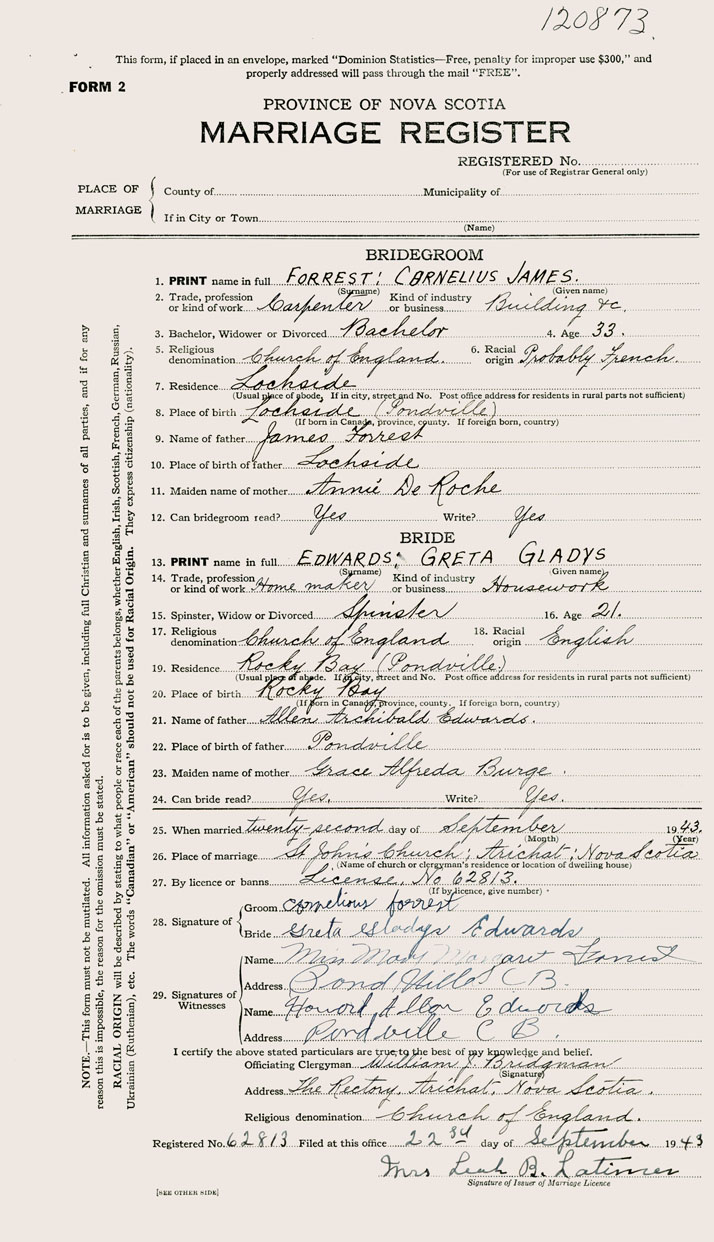 120873.
This form, if placed in an envelope, marked "Dominion Statistics—Free, penalty for improper use $300," and
properly addressed will pass through the mail "FREE".
FORM 2
PROVINCE OF NOVA SCOTIA
MARRIAGE REGISTER
REGISTERED No.
(For use of Registrar General only)
PLACE OF MARRIAGE
County of Municipality of
If in City or Town
(Name)
BRIDEGROOM
1. PRINT name in full FORREST; CORNELIUS JAMES.
(Surname) (Given name)
2. Trade, profession or kind of work Carpenter Kind of industry or business Building &c.
3. Bachelor, Widower or Divorced Bachelor 4. Age 33.
5. Religious denomination Church of England. 6. Racial origin Probably French.
7. Residence Lochside
(Usual place of abode. If in city, street and No. Post office address for residents in rural parts not sufficient)
8. Place of birth Lochside (Pondville)
(If born in Canada, province, county. If foreign born, country)
9. Name of father James Forrest
10. Place of birth of father Lochside
11. Maiden name of mother Annie De Roche
12. Can bridegroom read? Yes Write? Yes
BRIDE
13. PRINT name in full EDWARDS; GRETA GLADYS
(Surname) (Given name)
14. Trade, profession or kind of work Home maker Kind of industry or business Housework
15. Spinster, Widow or Divorced Spinster 16. Age 21.
17. Religious denomination Church of England 18. Racial origin English
19. Residence Rocky Bay (Pondville)
(Usual place of abode. If in city, street and No. Post office address for residents in rural parts not sufficient)
20. Place of birth Rocky Bay
(If born in Canada, province, county. If foreign born, country)
21. Name of father Allen Archibald Edwards.
22. Place of birth of father Pondville
23. Maiden name of mother Grace Alfreda Burge.
24. Can bride read? Yes. Write? Yes.
25. When married twenty-second day of September 1943.
(Month) (Year)
26. Place of marriage St John's Church; Arichat; Nova Scotia
(Name of church or clergyman's residence or location of dwelling house)
27. By licence or banns License, No 62813.
(If by licence, give number)
28. Signature of
Groom cornelious forrest
Bride Greta Gladys Edwards
29. Signatures of Witnesses
Name Miss Mary Margaret Forrest
Address Pond Ville C B.
Name Howard Allan Edwards
Address Pondville C B.
I certify the above stated particulars are true to the best of my knowledge and belief.
Officiating Clergyman William J. Bridgman
(Signature)
Address The Rectory, Arichat, Nova Scotia.
Religious denomination Church of England.
Registered No. 62813 Filed at this office 22nd day of September 1943
Mrs Leah B. Latimer
Signature of Issuer of Marriage Licence
[SEE OTHER SIDE]
NOTE.—This form must not be mutilated. All information asked for is to be given, including full Christian and surnames of all parties, and if for any
reason this is impossible, the reason for the omission must be stated.
RACIAL ORIGIN will be described by stating to what people or race each of the parents belongs, whether English, Irish, Scottish, French, German, Russian,
Ukrainian (Ruthenian), etc. The words "Canadian" or "American" should not be used for Racial Origin. They express citizenship (nationality).